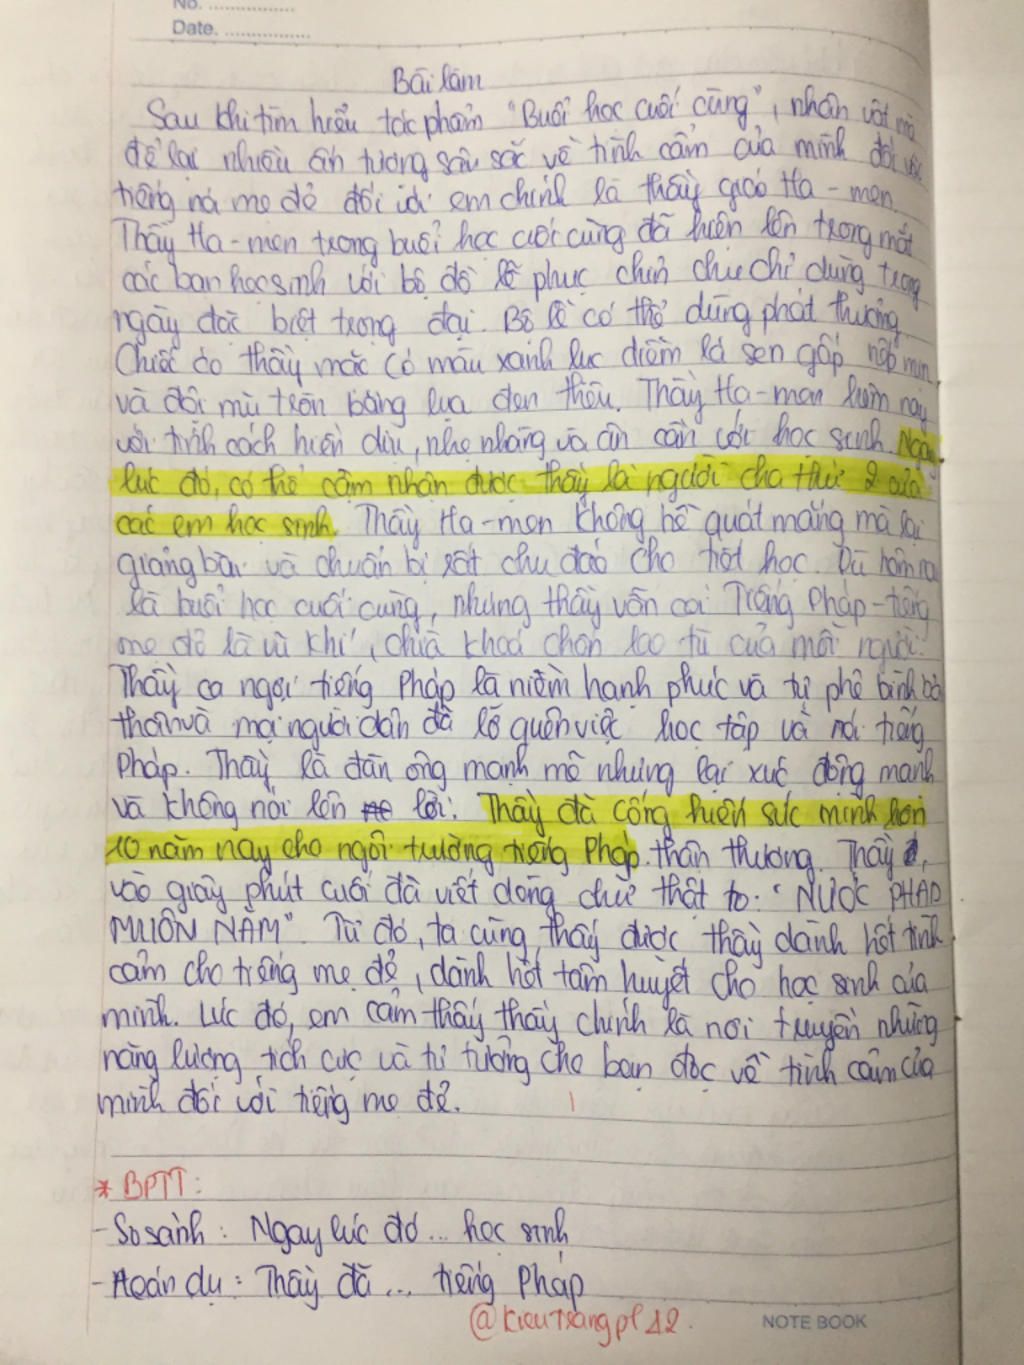 No. ................
Date. ................
Bài làm
Sau khi tìm hiểu tác phẩm "Buổi học cuối cùng", nhân vật mà
để lại nhiều ấn tượng sâu sắc về tình cảm của mình đối với
tiếng mẹ đẻ đối với em chính là thầy giáo Ha-men.
Thầy Ha-men trong buổi học cuối cùng đã hiện lên trong mắt
các bạn học sinh với bộ đồ lễ phục chỉn chu chỉ dùng trong
ngày đặc biệt trọng đại. Bộ lễ có thể dùng phát thưởng.
Chiếc áo thầy mặc có màu xanh lục diềm lá sen gấp nếp mịn
và đội mũ tròn bằng lụa đen thêu. Thầy Ha-men hôm nay
với tính cách hiền dịu, nhẹ nhàng và ân cần với học sinh. Ngay
lúc đó, có thể cảm nhận được thầy là người cha thứ 2 của
các em học sinh. Thầy Ha-men không hề quát mắng mà lại
giảng bài và chuẩn bị rất chu đáo cho tiết học. Dù hôm nay
là buổi học cuối cùng, nhưng thầy vẫn coi Tiếng Pháp-tiếng
mẹ đẻ là vũ khí, chìa khoá chốn lao tù của mỗi người.
Thầy ca ngợi tiếng Pháp là niềm hạnh phúc và tự phê bình bản
thân và mọi người dân đã lỡ quên việc học tập và nói tiếng
Pháp. Thầy là đàn ông mạnh mẽ nhưng lại xúc động mạnh
và không nói lên lời. Thầy đã cống hiến sức mình hơn
40 năm nay cho ngôi trường tiếng Pháp thân thương. Thầy,
vào giây phút cuối đã viết dòng chữ thật to: "NƯỚC PHÁP
MUÔN NĂM". Từ đó, ta cũng thấy được thầy dành hết tình
cảm cho tiếng mẹ đẻ, dành hết tâm huyết cho học sinh của
mình. Lúc đó, em cảm thấy thầy chính là nơi truyền những
năng lượng tích cực và tư tưởng cho bạn đọc về tình cảm của
mình đối với tiếng mẹ đẻ.
* BPTT:
- So sánh: Ngay lúc đó... học sinh
- Hoán dụ: Thầy đã ... tiếng Pháp
@kieutrangpt12.
NOTE BOOK